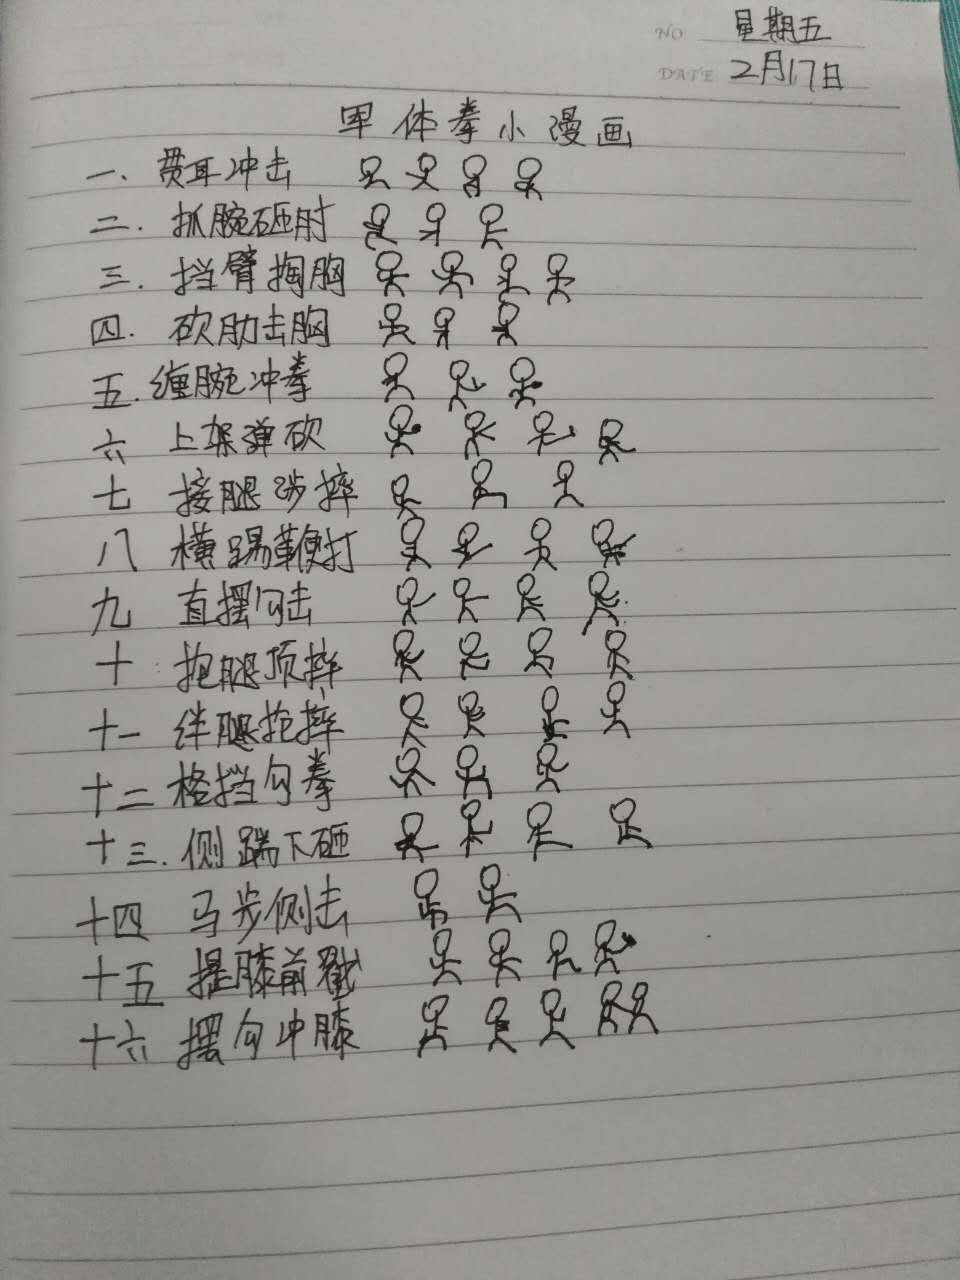 NO 星期五
DATE 2月17日
军体拳小漫画
一、贯耳冲击
二. 抓腕砸肘
三. 挡臂掏胸
四. 砍肋击胸
五. 缠腕冲拳
六 上架弹砍
七 接腿涉摔
八 横踢鞭打
九 直摆勾击
十 抱腿顶摔
十一 绊腿抢摔
十二 格挡勾拳
十三. 侧踹下砸
十四 马步侧击
十五 提膝前戳
十六 摆勾冲膝